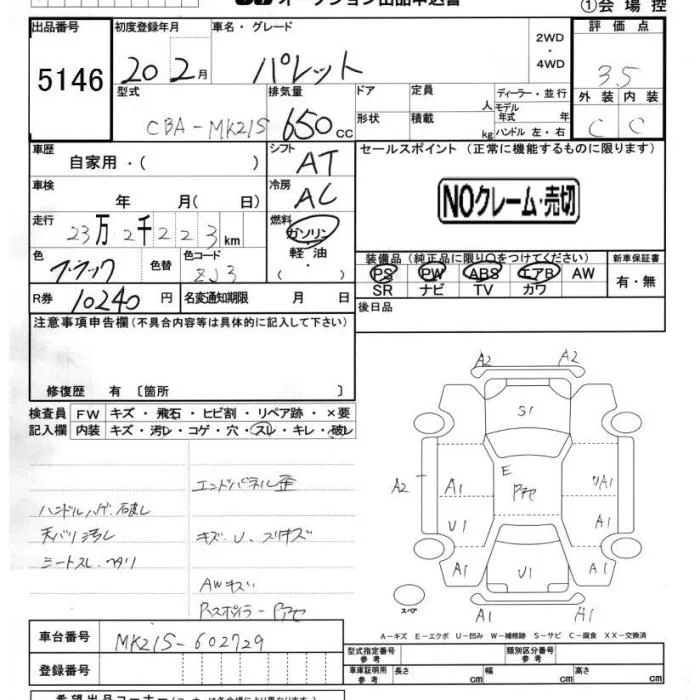 オークション出品申込書
①会場控
出品番号 初度登録年月 車名・グレード 2WD・4WD 評価点
5146 20 2月 パレット 3.5
型式 排気量 ドア 定員 人 ディーラー・並行 外装 内装
CBA-MK21S 650cc 形状 積載 kg モデル年式 年 ハンドル 左・右 C C
車歴 自家用・( ) シフト AT セールスポイント (正常に機能するものに限ります)
車検 年 月( 日) 冷房 AC NOクレーム・売切
走行 23万2千223km 燃料 ガソリン・軽油・( )
色 ブラック 色替 色コード ZJ3
装備品(純正品に限り○をつけてください) 新車保証書
PS PW ABS エアB AW 有・無
SR ナビ TV カワ
R券 10240円 名変通知期限 月 日 後日品
注意事項申告欄(不具合内容等は具体的に記入して下さい)
修復歴 有 〔箇所 〕
検査員記入欄 FW キズ・飛石・ヒビ割・リペア跡・×要
内装 キズ・汚レ・コゲ・穴・スレ・キレ・破レ
エンドパネル歪
ハンドルハゲ.破レ
天バリ汚レ キズ.U.スリキズ
シートスレ.ヘタリ
AWキズ
Rスポイラー
A2 A2
S1
A2 A1 E UA1
U1 A1
A1 U1 A1
A1 A1
スペア
A-キズ E-エクボ U-凹み W-補修跡 S-サビ C-腐食 XX-交換済
車台番号 MK21S-602729
登録番号
型式指定番号 参考 類別区分番号 参考
車庫証明用 参考 長さ cm 幅 cm 高さ cm
希望出品コーナー